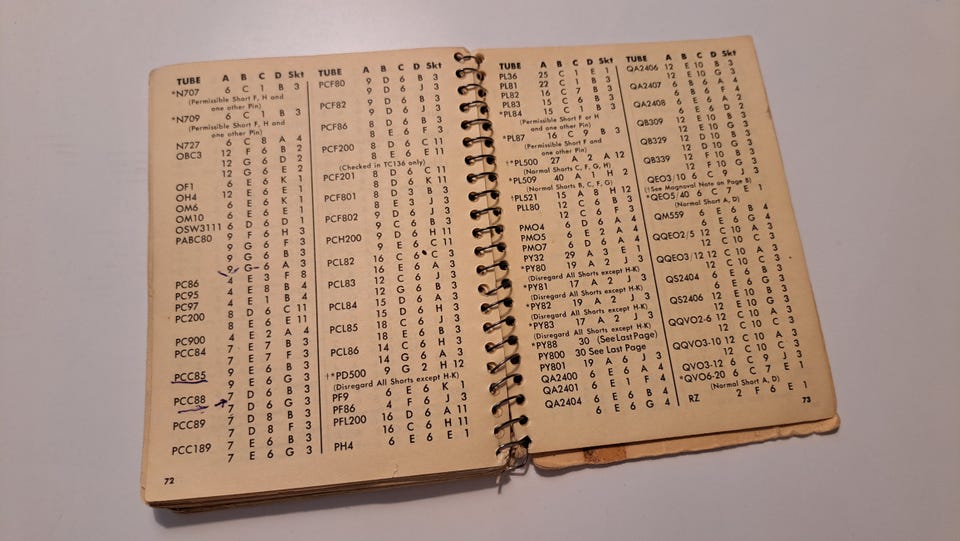 TUBE A B C D Skt
*N707 6 C 1 B 3
(Permissible Short F, H and
one other Pin)
*N709 6 C 1 B 3
(Permissible Short F, H and
one other Pin)
N727 6 C 8 A 4
OBC3 12 F 6 B 2
12 G 6 D 2
12 G 6 E 2
OF1 6 E 6 K 1
OH4 12 E 6 K 1
OM6 6 E 6 K 1
OM10 6 E 6 E 1
OSW3111 6 D 6 D 1
PABC80 9 F 6 H 3
9 G 6 F 3
9 G 6 A 3
PC86 4 E 3 F 8
PC95 4 E 8 B 4
PC97 4 E 1 B 4
PC200 8 D 6 C 11
8 E 6 E 11
PC900 4 E 2 A 4
PCC84 7 E 7 B 3
7 E 7 F 3
PCC85 9 E 6 B 3
9 E 6 G 3
PCC88 7 D 6 B 3
7 D 6 G 3
PCC89 7 D 8 B 3
7 D 8 F 3
PCC189 7 E 6 B 3
7 E 6 G 3
72
TUBE A B C D Skt
PCF80 9 D 6 B 3
9 D 6 J 3
PCF82 9 D 6 B 3
9 D 6 J 3
PCF86 8 D 6 B 3
8 E 6 F 3
PCF200 8 D 6 C 11
8 E 6 E 11
(Checked in TC136 only)
PCF201 8 D 6 C 11
8 D 6 K 11
PCF801 8 D 3 B 3
8 E 3 J 3
PCF802 9 D 6 J 3
9 D 6 B 3
PCH200 9 D 6 H 11
9 E 6 C 11
PCL82 16 C 6 C 3
16 E 6 A 3
PCL83 12 C 6 J 3
12 G 6 B 3
PCL84 15 D 6 A 3
15 D 6 H 3
PCL85 18 C 6 J 3
18 C 6 B 3
PCL86 14 C 6 H 3
14 G 6 A 3
†*PD500 9 G 2 H 12
(Disregard All Shorts except H-K)
PF9 6 E 6 K 1
PF86 4 F 6 J 3
PFL200 16 D 6 A 11
16 C 6 H 11
PH4 6 E 6 E 1
TUBE A B C D Skt
PL36 25 C 1 E 1
PL81 22 C 1 B 3
PL82 16 C 7 B 3
PL83 15 C 6 B 3
*PL84 15 C 1 B 3
(Permissible Short F or H
and one other Pin)
*PL87 16 C 9 B 3
(Permissible Short F and
one other Pin)
†*PL500 27 A 2 A 12
(Normal Shorts C, F, G, H)
*PL509 40 A 1 H 2
(Normal Shorts B, C, F, G)
†PL521 15 A 8 H 12
PLL80 12 C 6 B 3
12 C 6 F 3
PMO4 6 D 6 A 4
PMO5 6 E 2 A 4
PMO7 6 D 6 A 4
PY32 29 A 3 E 1
*PY80 19 A 2 J 3
(Disregard All Shorts except H-K)
*PY81 17 A 2 J 3
(Disregard All Shorts except H-K)
*PY82 19 A 2 J 3
(Disregard All Shorts except H-K)
*PY83 17 A 2 J 3
(Disregard All Shorts except H-K)
*PY88 30 (See Last Page)
PY800 30 See Last Page
PY801 19 A 6 J 3
QA2400 6 E 6 J 4
QA2401 6 E 1 F 4
QA2404 6 E 6 B 4
6 E 6 G 4
TUBE A B C D Skt
QA2406 12 E 10 B 3
12 E 10 G 3
QA2407 6 B 6 A 4
6 B 6 F 4
QA2408 6 E 6 A 2
6 E 6 D 2
QB309 12 E 10 B 3
12 E 10 G 3
QB329 12 D 10 B 3
12 D 10 G 3
QB339 12 F 10 B 3
12 F 10 G 3
QEO3/10 6 C 9 J 3
(†See Magnoval Note on Page B)
*QEO5/40 6 C 7 E 1
(Normal Short A, D)
QM559 6 E 6 B 4
6 E 6 G 4
QQEO2/5 12 C 10 A 3
12 C 10 C 3
QQEO3/12 12 C 10 A 3
12 C 10 C 3
QS2404 6 E 6 B 3
6 E 6 G 3
QS2406 12 E 10 B 3
12 E 10 G 3
QQVO2-6 12 C 10 A 3
12 C 10 C 3
QQVO3-10 12 C 10 A 3
12 C 10 C 3
QVO3-12 6 C 9 J 3
*QVO6-20 6 C 7 E 1
(Normal Short A, D)
RZ 2 F 6 E 1
73